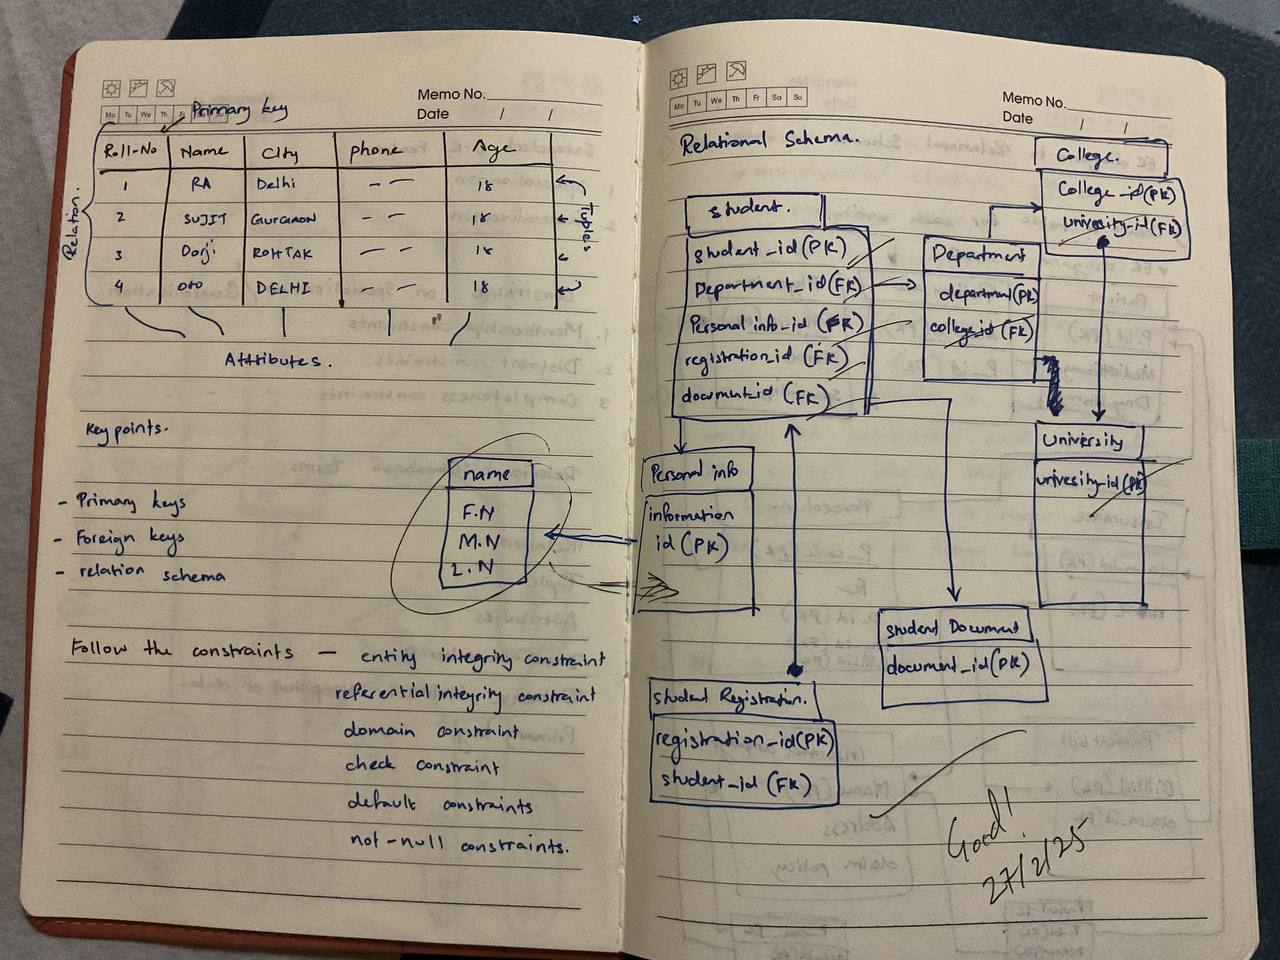 Memo No.
Date / /
Mo Tu We Th F
Primary key
Roll-No Name City phone Age
1 RA Delhi -- 18
2 SUJIT GURGAON -- 18
3 Dorji ROHTAK -- 18
4 DELHI -- 18
Relation.
Tuples
Attributes.
Key points.
- Primary keys
- Foreign keys
- relation schema
name
F.N
M.N
L.N
Follow the constraints — entity integrity constraint
referential integrity constraint
domain constraint
check constraint
default constraints
not-null constraints.
Mo Tu We Th Fr Sa Su
Memo No.
Date / /
Relational Schema.
student.
student_id (PK)
Department_id (FK)
Personal info_id (FK)
registration_id (FK)
document_id (FK)
Department
department (PK)
college_id (FK)
College.
College_id (PK)
univesity_id (FK)
University
univesity_id (PK)
Personal info
information
id (PK)
student Document
document_id (PK)
student Registration.
registration_id (PK)
student_id (FK)
Good!
27/2/25